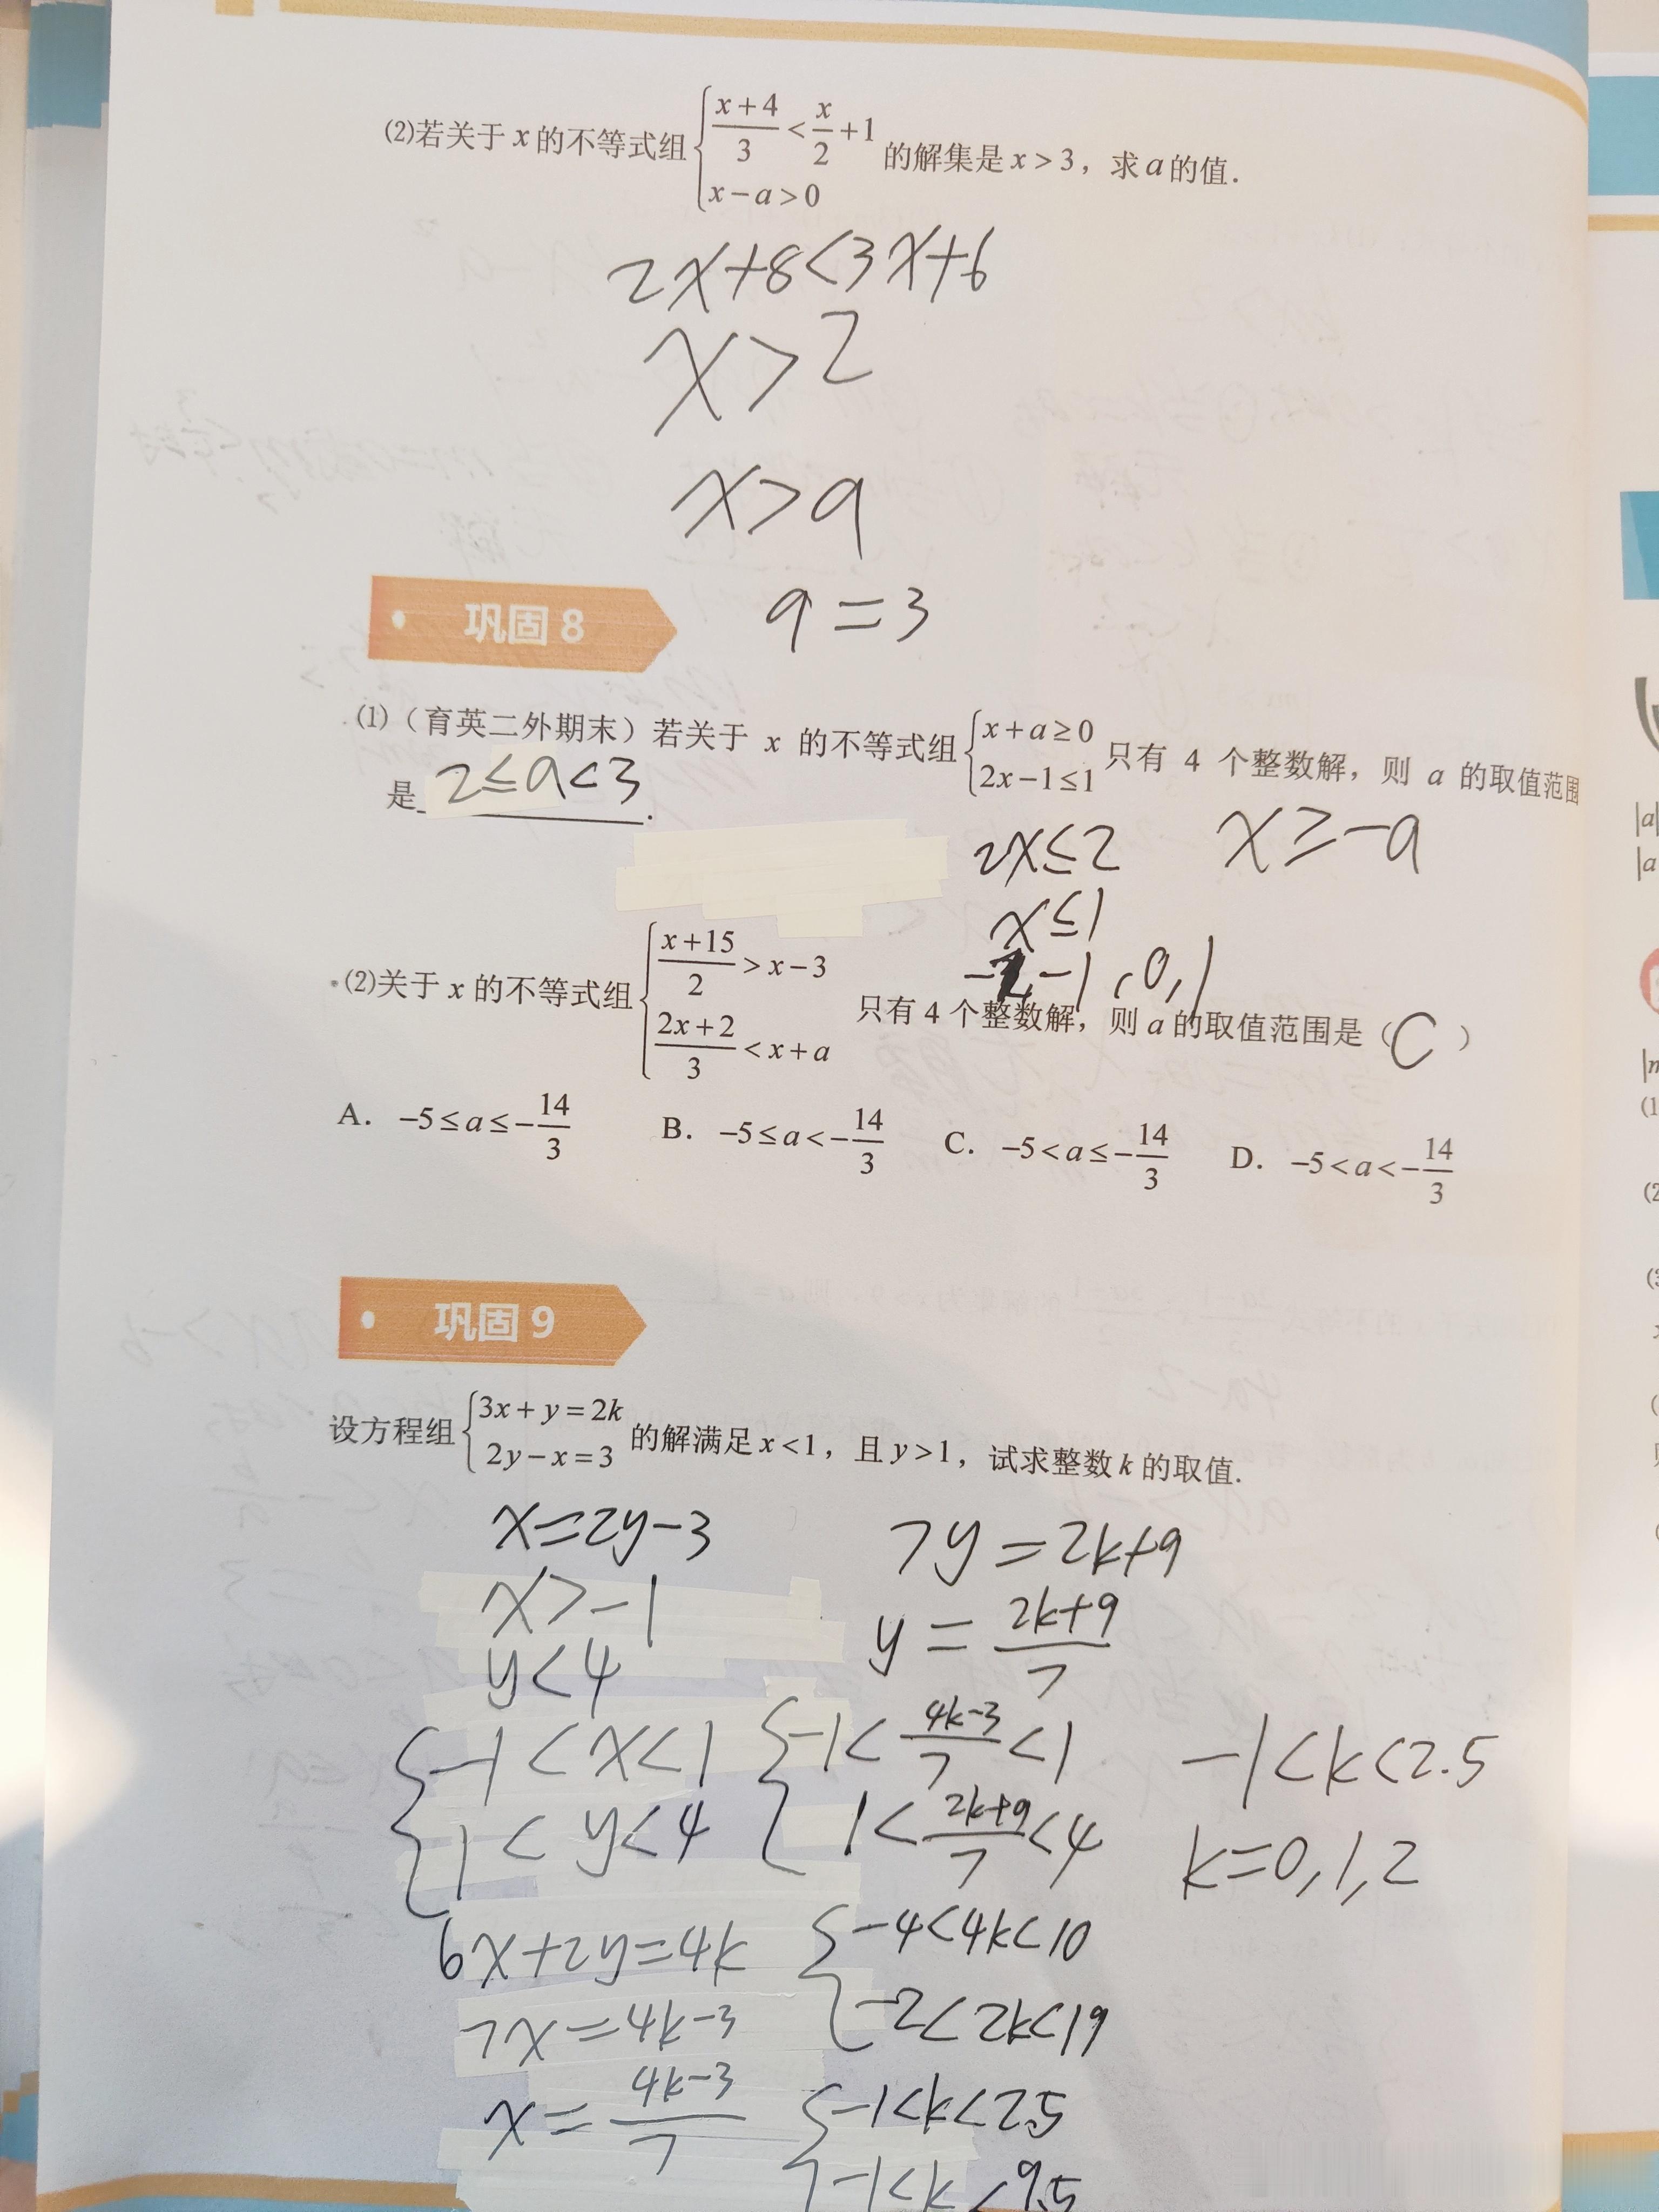 (2)若关于 x 的不等式组 { (x+4)/3 < x/2 +1 , x-a>0 的解集是 x>3，求 a 的值.
2x+8<3x+6
x>2
x>a
a=3
巩固 8
(1)（育英二外期末）若关于 x 的不等式组 { x+a≥0 , 2x-1≤1 只有 4 个整数解，则 a 的取值范围
是 2≤a<3 .
2x≤2 x≥-a
x≤1
-2 -1 , 0, 1
(2)关于 x 的不等式组 { (x+15)/2 > x-3 , (2x+2)/3 < x+a 只有 4 个整数解，则 a 的取值范围是（ C ）
A. -5≤a≤-14/3 B. -5≤a<-14/3 C. -5<a≤-14/3 D. -5<a<-14/3
巩固 9
设方程组 { 3x+y=2k , 2y-x=3 的解满足 x<1，且 y>1，试求整数 k 的取值.
x=2y-3 7y=2k+9
x>-1 y=(2k+9)/7
y<4
{ -1<x<1 { -1<(4k-3)/7<1 -1<k<2.5
1<y<4 1<(2k+9)/7<4 k=0,1,2
6x+2y=4k { -4<4k<10
7x=4k-3 -2<2k<19
x=(4k-3)/7 { -1<k<2.5
-1<k<9.5
|a|
|a
(1
(2
(3